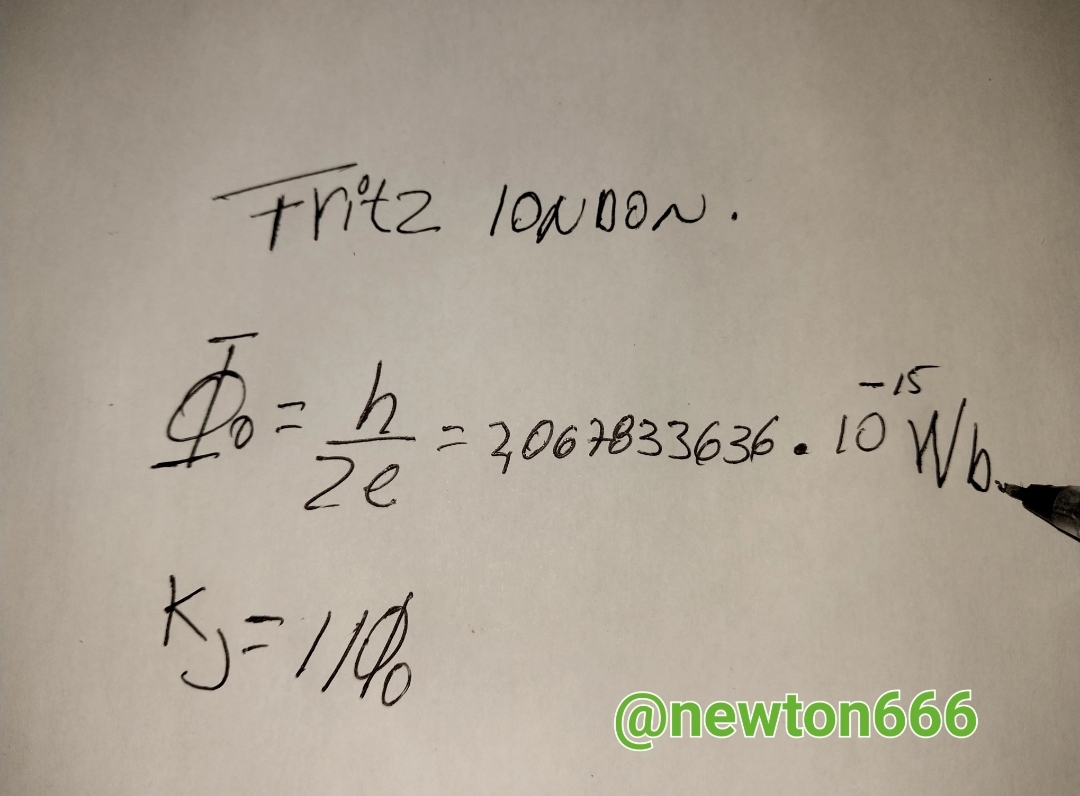 Fritz LONDON.
Φ₀ = h/2e = 2,067833636 . 10⁻¹⁵ Wb.
KJ = 1/Φ₀
@newton666